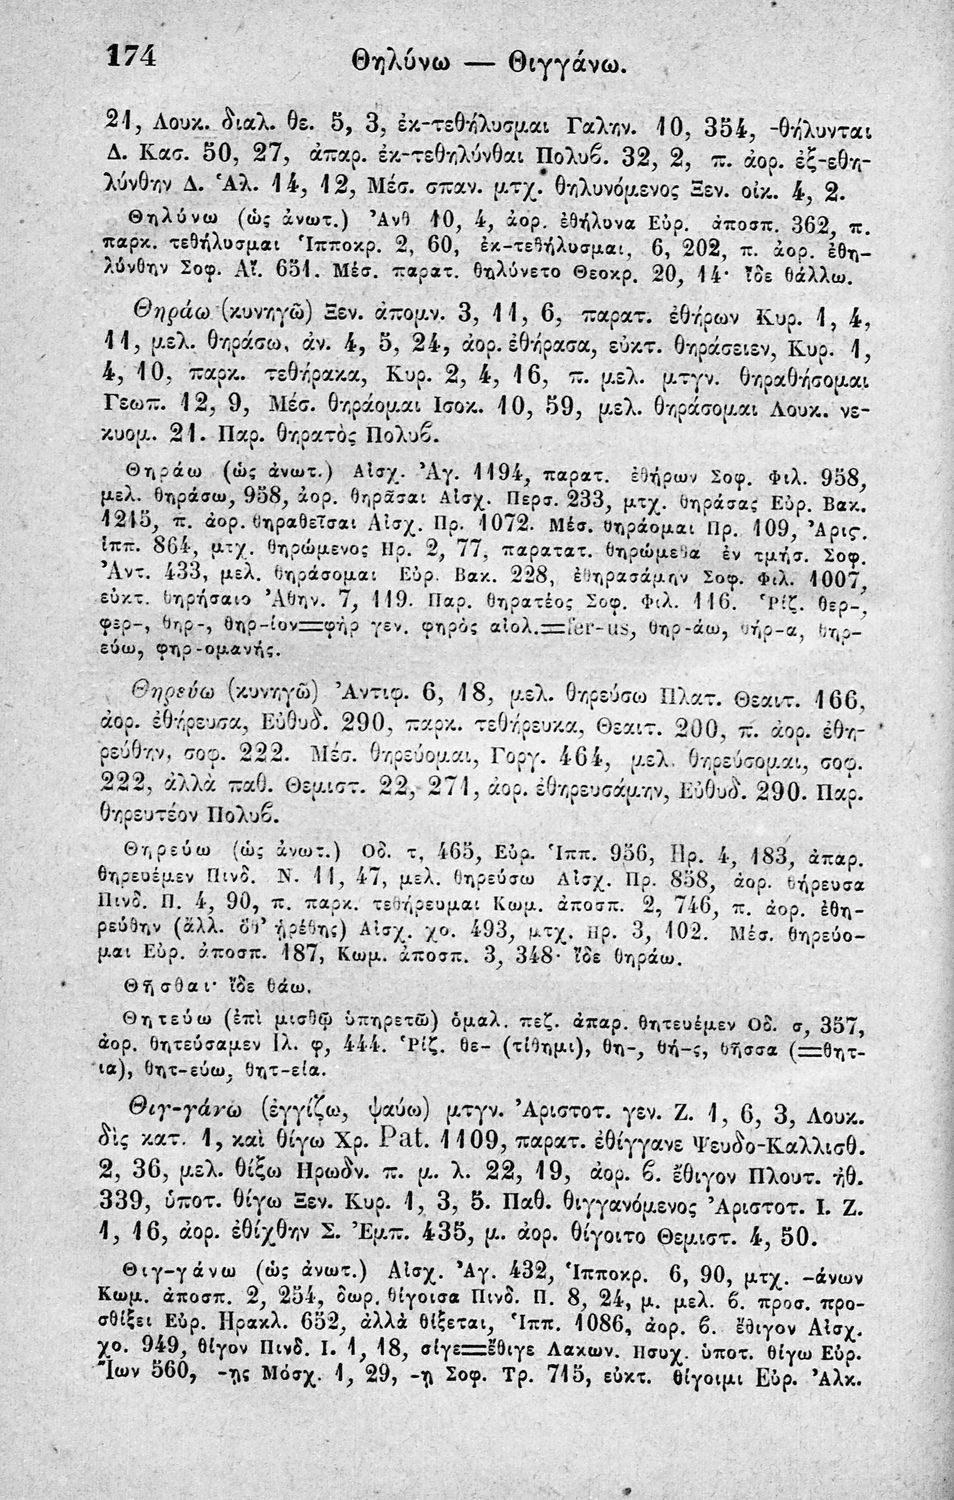 174 Θηλύνω — Θιγγάνω.
21, Λουκ. διαλ. θε. 5, 3, ἐκ-τεθήλυσμαι Γαλην. 10, 354, -θήλυνται
Δ. Κασ. 50, 27, ἀπαρ. ἐκ-τεθηλύνθαι Πολυβ. 32, 2, π. ἀορ. ἐξ-εθη-
λύνθην Δ. Ἁλ. 14, 12, Μέσ. σπαν. μτχ. θηλυνόμενος Ξεν. οἰκ. 4, 2.
Θηλύνω (ὡς ἀνωτ.) Ἀνθ 10, 4, ἀορ. ἐθήλυνα Εὐρ. ἀποσπ. 362, π.
παρκ. τεθήλυσμαι Ἱπποκρ. 2, 60, ἐκ-τεθήλυσμαι, 6, 202, π. ἀορ. ἐθη-
λύνθην Σοφ. Αἴ. 651. Μέσ. παρατ. θηλύνετο Θεοκρ. 20, 14· ἴδε θάλλω.
Θηράω (κυνηγῶ) Ξεν. ἀπομν. 3, 11, 6, παρατ. ἐθήρων Κυρ. 1, 4,
11, μελ. θηράσω, ἀν. 4, 5, 24, ἀορ. ἐθήρασα, εὐκτ. θηράσειεν, Κυρ. 1,
4, 10, παρκ. τεθήρακα, Κυρ. 2, 4, 16, π. μελ. μτγν. θηραθήσομαι
Γεωπ. 12, 9, Μέσ. θηράομαι Ισοκ. 10, 59, μελ. θηράσομαι Λουκ. νε-
κυομ. 21. Παρ. θηρατὸς Πολυβ.
Θηράω (ὡς ἀνωτ.) Αἰσχ. Ἀγ. 1194, παρατ. ἐθήρων Σοφ. Φιλ. 958,
μελ. θηράσω, 958, ἀορ. θηρᾶσαι Αἰσχ. Περσ. 233, μτχ. θηράσας Εὐρ. Βακ.
1215, π. ἀορ. θηραθεῖσαι Αἰσχ. Πρ. 1072. Μέσ. θηράομαι Πρ. 109, Ἀρις.
ἱππ. 864, μτχ. θηρώμενος Ηρ. 2, 77, παρατατ. θηρώμεθα ἐν τμήσ. Σοφ.
Ἀντ. 433, μελ. θηράσομαι Εὐρ. Βακ. 228, ἐθηρασάμην Σοφ. Φιλ. 1007,
εὐκτ. θηρήσαιο Ἀθην. 7, 119. Παρ. θηρατέος Σοφ. Φιλ. 116. Ῥίζ. θερ-,
φερ-, θηρ-, θηρ-ίον=φὴρ γεν. φηρὸς αἰολ.=fer-us, θηρ-άω, θήρ-α, θηρ-
εύω, φηρ-ομανής.
Θηρεύω (κυνηγῶ) Ἀντιφ. 6, 18, μελ. θηρεύσω Πλατ. Θεαιτ. 166,
ἀορ. ἐθήρευσα, Εὐθυδ. 290, παρκ. τεθήρευκα, Θεαιτ. 200, π. ἀορ. ἐθη-
ρεύθην, σοφ. 222. Μέσ. θηρεύομαι, Γοργ. 464, μελ. θηρεύσομαι, σοφ.
222, ἀλλὰ παθ. Θεμιστ. 22, 271, ἀορ. ἐθηρευσάμην, Εὐθυδ. 290. Παρ.
θηρευτέον Πολυβ.
Θηρεύω (ὡς ἀνωτ.) Οδ. τ, 465, Εὐρ. Ἱππ. 956, Ηρ. 4, 183, ἀπαρ.
θηρευέμεν Πινδ. Ν. 11, 47, μελ. θηρεύσω Αἰσχ. Πρ. 858, ἀορ. θήρευσα
Πινδ. Π. 4, 90, π. παρκ. τεθήρευμαι Κωμ. ἀποσπ. 2, 746, π. ἀορ. ἐθη-
ρεύθην (ἄλλ. δθ' ᾑρέθης) Αἰσχ. χο. 493, μτχ. Ηρ. 3, 102. Μέσ. θηρεύο-
μαι Εὐρ. ἀποσπ. 187, Κωμ. ἀποσπ. 3, 348· ἴδε θηράω.
Θῆσθαι· ἴδε θάω.
Θητεύω (ἐπὶ μισθῷ ὑπηρετῶ) ὁμαλ. πεζ. ἀπαρ. θητευέμεν Οδ. σ, 357,
ἀορ. θητεύσαμεν Ιλ. φ, 444. Ῥίζ. θε- (τίθημι), θη-, θή-ς, θῆσσα (=θητ-
ια), θητ-εύω, θητ-εία.
Θιγ-γάνω (ἐγγίζω, ψαύω) μτγν. Ἀριστοτ. γεν. Ζ. 1, 6, 3, Λουκ.
δὶς κατ. 1, καὶ θίγω Χρ. Pat. 1109, παρατ. ἐθίγγανε Ψευδο-Καλλισθ.
2, 36, μελ. θίξω Ηρωδν. π. μ. λ. 22, 19, ἀορ. β. ἔθιγον Πλουτ. ἠθ.
339, ὑποτ. θίγω Ξεν. Κυρ. 1, 3, 5. Παθ. θιγγανόμενος Ἀριστοτ. Ι. Ζ.
1, 16, ἀορ. ἐθίχθην Σ. Ἐμπ. 435, μ. ἀορ. θίγοιτο Θεμιστ. 4, 50.
Θιγ-γάνω (ὡς ἀνωτ.) Αἰσχ. Ἀγ. 432, Ἱπποκρ. 6, 90, μτχ. -άνων
Κωμ. ἀποσπ. 2, 254, δωρ. θίγοισα Πινδ. Π. 8, 24, μ. μελ. β. προσ. προ-
σθίξει Εὐρ. Ηρακλ. 652, ἀλλὰ θίξεται, Ἱππ. 1086, ἀορ. β. ἔθιγον Αἰσχ.
χο. 949, θίγον Πινδ. Ι. 1, 18, σίγε=ἔθιγε Λακων. Ησυχ. ὑποτ. θίγω Εὐρ.
Ἴων 560, -ῃς Μόσχ. 1, 29, -ῃ Σοφ. Τρ. 715, εὐκτ. θίγοιμι Εὐρ. Ἀλκ.